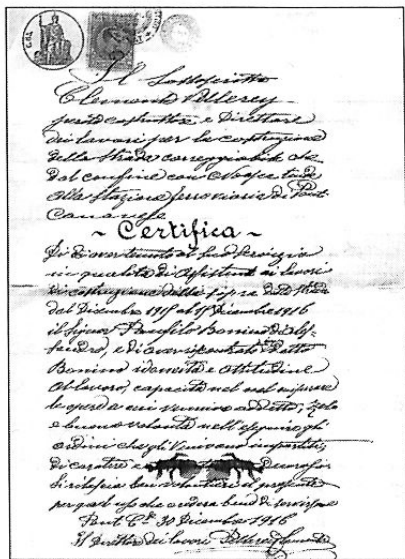 Il sottoscritto
Clemente Pellerey
perito costruttore e Direttore
dei lavori per la costruzione
della strada carreggiabile
dal confine con
alla stazione ferroviaria di Pont
Canavese
~ Certifica ~
Di aver tenuto al suo servizio
in qualità di assistente ai lavori
di costruzione della sopra detta strada
dal Dicembre 1915 al 15 Dicembre 1916
il signor Panfilo Bonino di
e di aver
Bonino idoneità e attitudine
al lavoro, capacità nel
le opere a cui venne addetto, zelo
e buona volontà nell'eseguire gli
ordini che gli venivano impartiti,
di carattere
Si rilascia ben volentieri il presente
per quell'uso che crederà bene di servirsene
Pont C.se 30 Dicembre 1916
Il Direttore dei lavori Pellerey Clemente